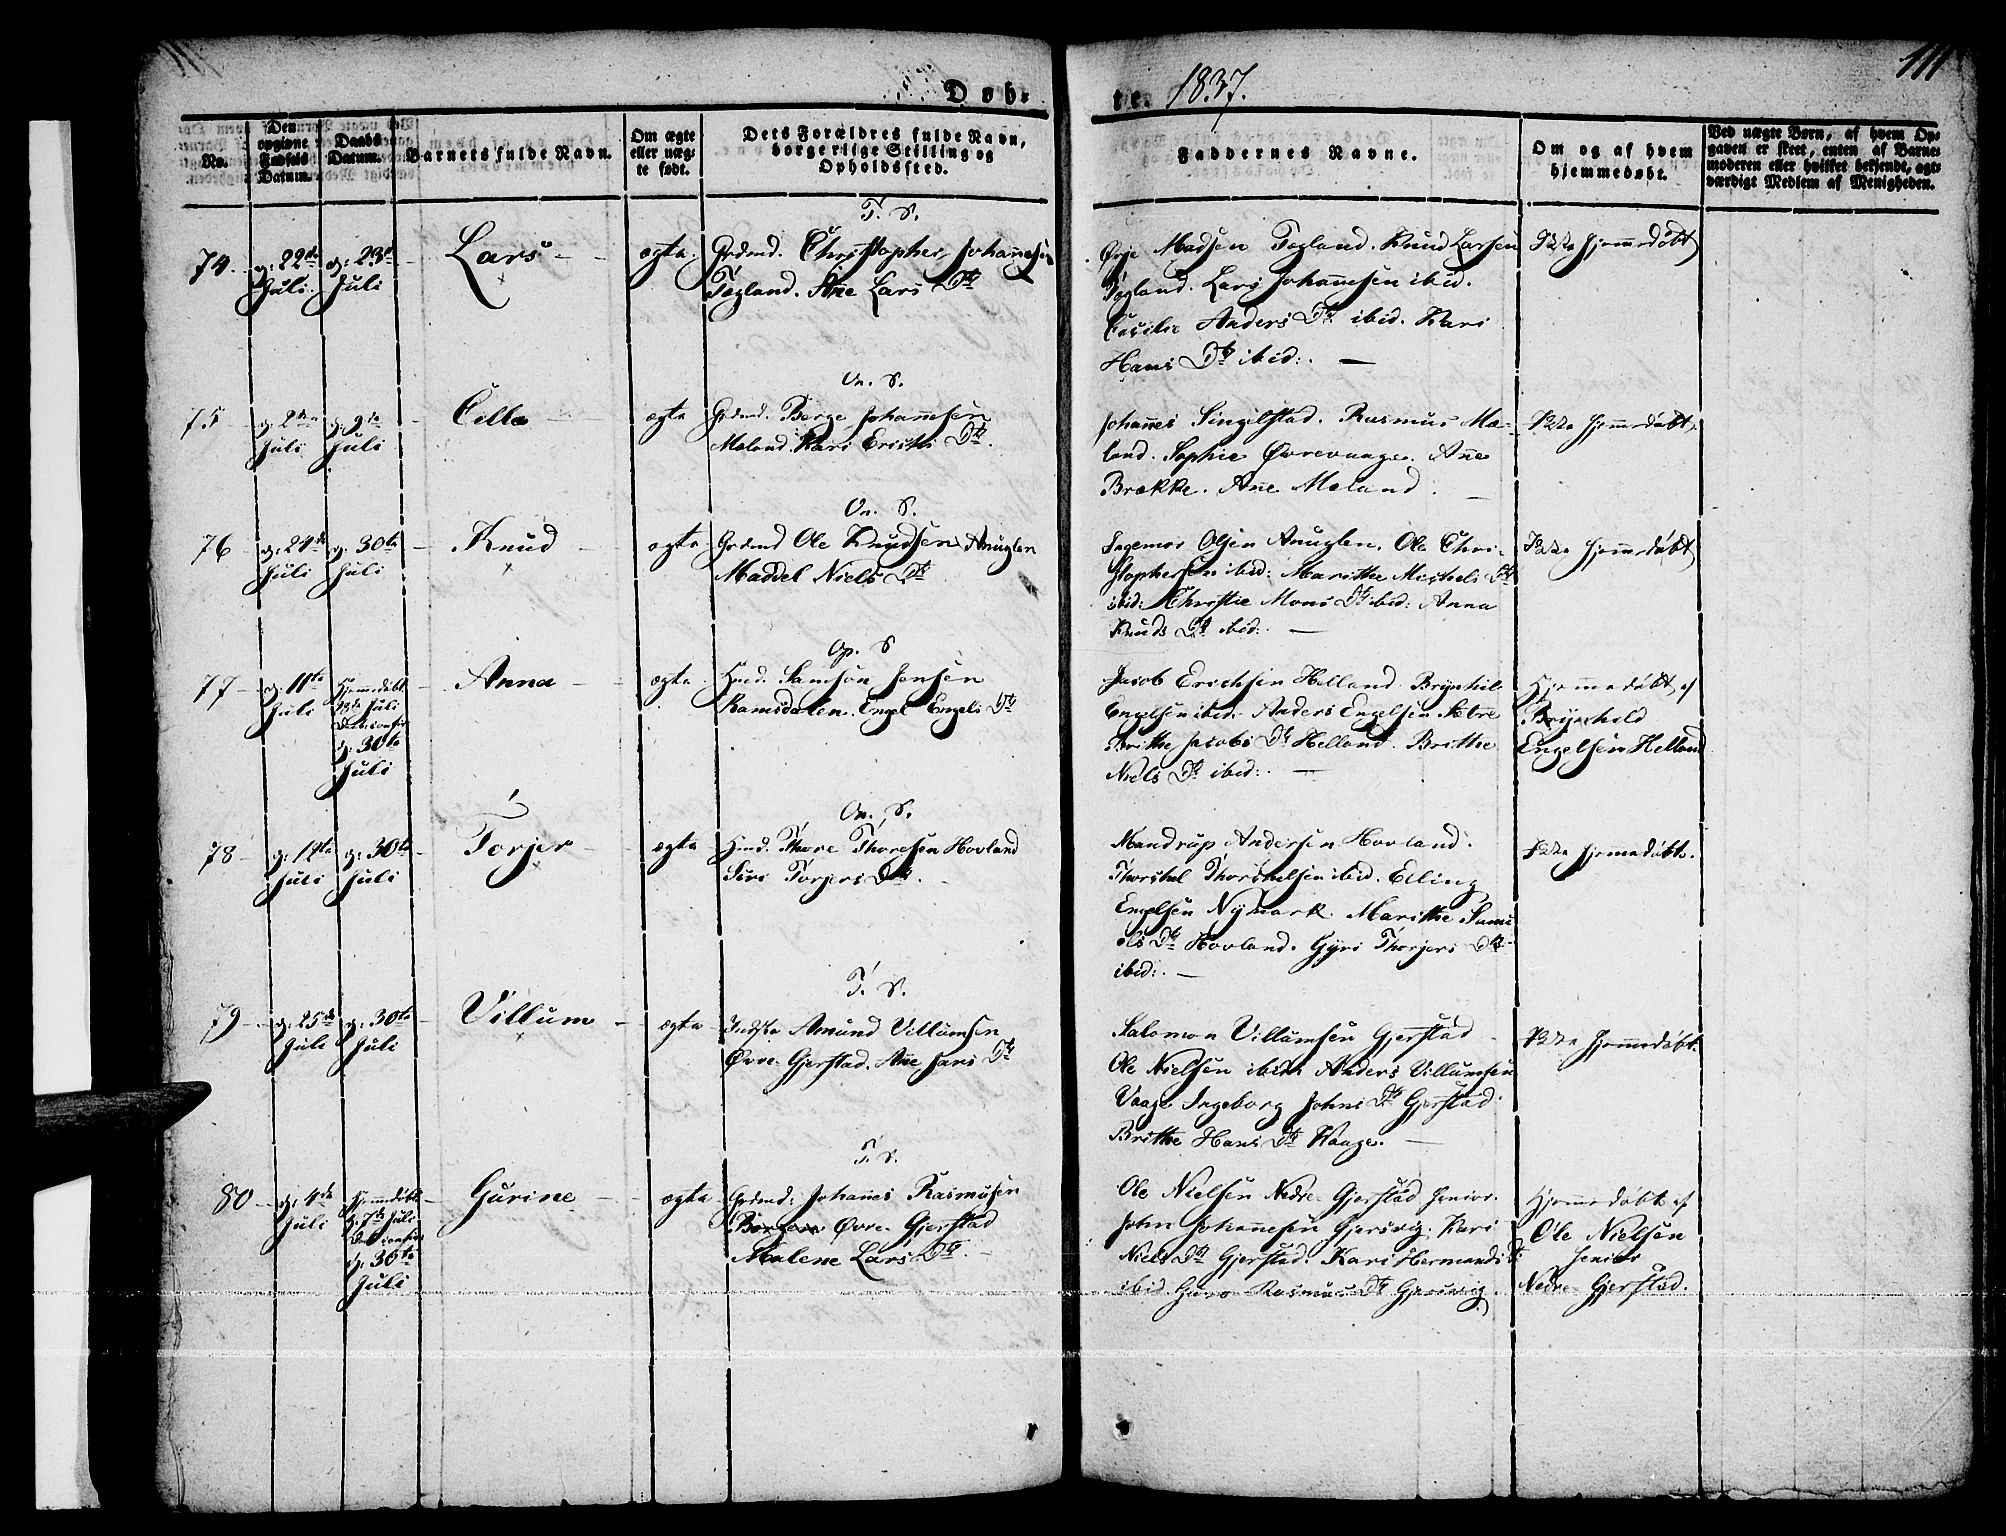 111
Døb-
te. 1837.
No.
Den opgivne Fødsels Datum.
Daabs Datum.
Barnets fulde Navn.
Om ægte eller uæg- te født.
Dets Forældres fulde Navn, borgerlige Stilling og Opholdssted.
Faddernes Navne.
Om og af hvem hjemmedøbt.
Ved uægte Børn, af hvem Op- gaven er skeet, enten af Barne- moderen eller hvilket bekjendt, agt- værdigt Medlem af Menigheden.
T. S.
74 d: 22de Juli d: 23de Juli Lars ægte
Grdmd. Christopher Johañesen
Tøgland. Añe Lars Dtr
Madsen Tøgland. Knud Larsen
Tøgland. Lars Johañesen ibid.
Cecilie Anders Dtr ibid. Kari
Hans Dtr ibid:
Ikke hjemedøbt
On. S.
75 Juli d: 9de Juli Cille ægte
Grdmd. Berge Johannesen
Maland. Kari Erichs Dtr.
Johañes Singelstad. Rasmus Mæ-
land. Sophie Øvrevaage. Añe
Brække. Añe Meland.
Ikke hjemedøbt.
On. S.
76 d: 24de Juli d: 30te Juli Knud ægte
Grdmd Ole Knudsen Anuglen
Maddel Niels Dtr
Ingemor Olsen Anuglen. Ole Chri-
stophersen ibid: Marithe Michels Dtr
ibid: Christie Mons Dtr ibid: Anna
Knuds Dtr ibid:
Ikke hjemedøbt
Op. S
77 d: 11te Juli Hjemedøbt Juli d: 30te Juli Anna ægte
Hmd. Samson Jensen
Ramsdalen. Engel Engels Dtr
Jacob Erichsen Helland. Brynhil
Engelsen ibid. Anders Engelsen Sætre
Brithe Jacobs Dtr Helland. Brithe
Niels Dtr ibid:
Hjemmedøbt af
Brynhild
Engelsen Helland
On. S.
78 d: 12te Juli d: 30te Juli Torjer ægte
Hmd. Thore Thoresen Hovland
Siri Torjers Dtr.
Mandrup Andersen Hovland.
Thorstel Thorstelsen ibid. Elling
Engelsen Nymark. Marithe Samu
els Dtr Hovland. Gyri Thorjers Dtr
ibid:
Ikke hjemedøbt.
T. S.
79 d: 25de Juli d: 30te Juli Villum ægte
Indste Amund Villumsen
Øvre Gjerstad. Añe Jans Dtr
Salomon Villumsen Gjerstad
Ole Nielsen ibidm Anders Villumsen
Vaage Ingeborg Johns Dtr Gjerstad
Brithe Hans Dtr Waage.
Ikke hjemedøbt.
T. S.
80 d: 4de Juli Hjemedøbt d: 7de Juli d: 30te Juli Gurine ægte
Grdmd: Johañes Rasmusen
Øvre Gjerstad
Malene Lars Dtr.
Ole Nielsen Nedre Gjerstad senior.
John Johañesen Gjersvig. Kari
Niels Dtr Gjerstad. Kari Hermands Dtr
ibid. Guro Rasmus Dtr Gjersvig.
Hjemmedøbt af
Ole Nielsen
senior
Nedre Gjerstad.